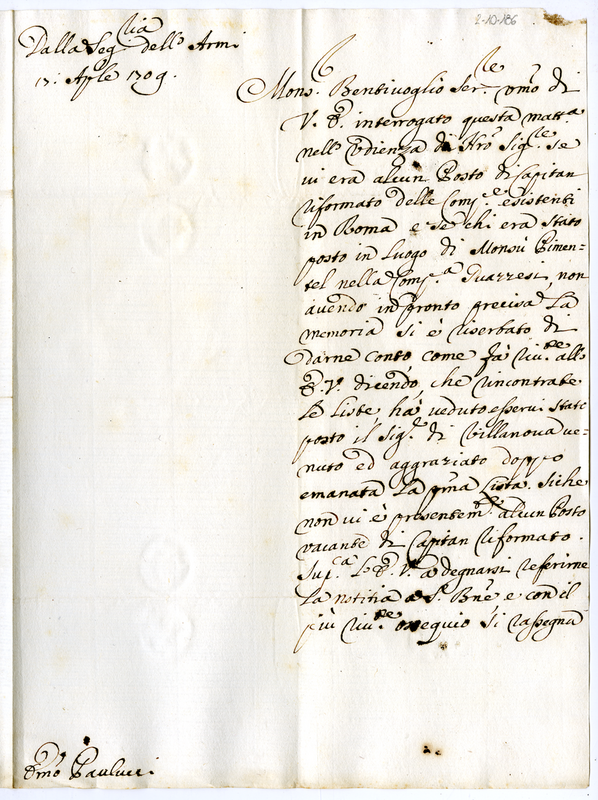 2-10-186
Dalla Seg.lia dell'Armi
13: Aple 1709.
Mons.r Bentivoglio Ser.le Vmo di
V. E. interrogato questa matt.a
nell'Vdienza di Nro Sig.re se
ui era alcun Posto di Capitan
riformato delle Comp.e esistenti
in Roma e se chi era stato
posto in Luogo di Monsù Pimen=
tel nella Comp.a Guazzesi, non
auendo in pronto precisa La
memoria si è riserbato di
darne conto come fà riu.te all'
E. V. dicendo, che rincontrate
Le Liste hà veduto esserui stato
posto il Sig.r di Villanova ve=
nuto ed aggraziato doppo
emanata La pma Lista. Siche
non ui è presentem.te alcun Posto
vacante di Capitan riformato.
Sup.ca L'E. V. a degnarsi referirne
La notitia a S. Bne e con il
più riu.te ossequio si rassegna
Emo Paulucci.